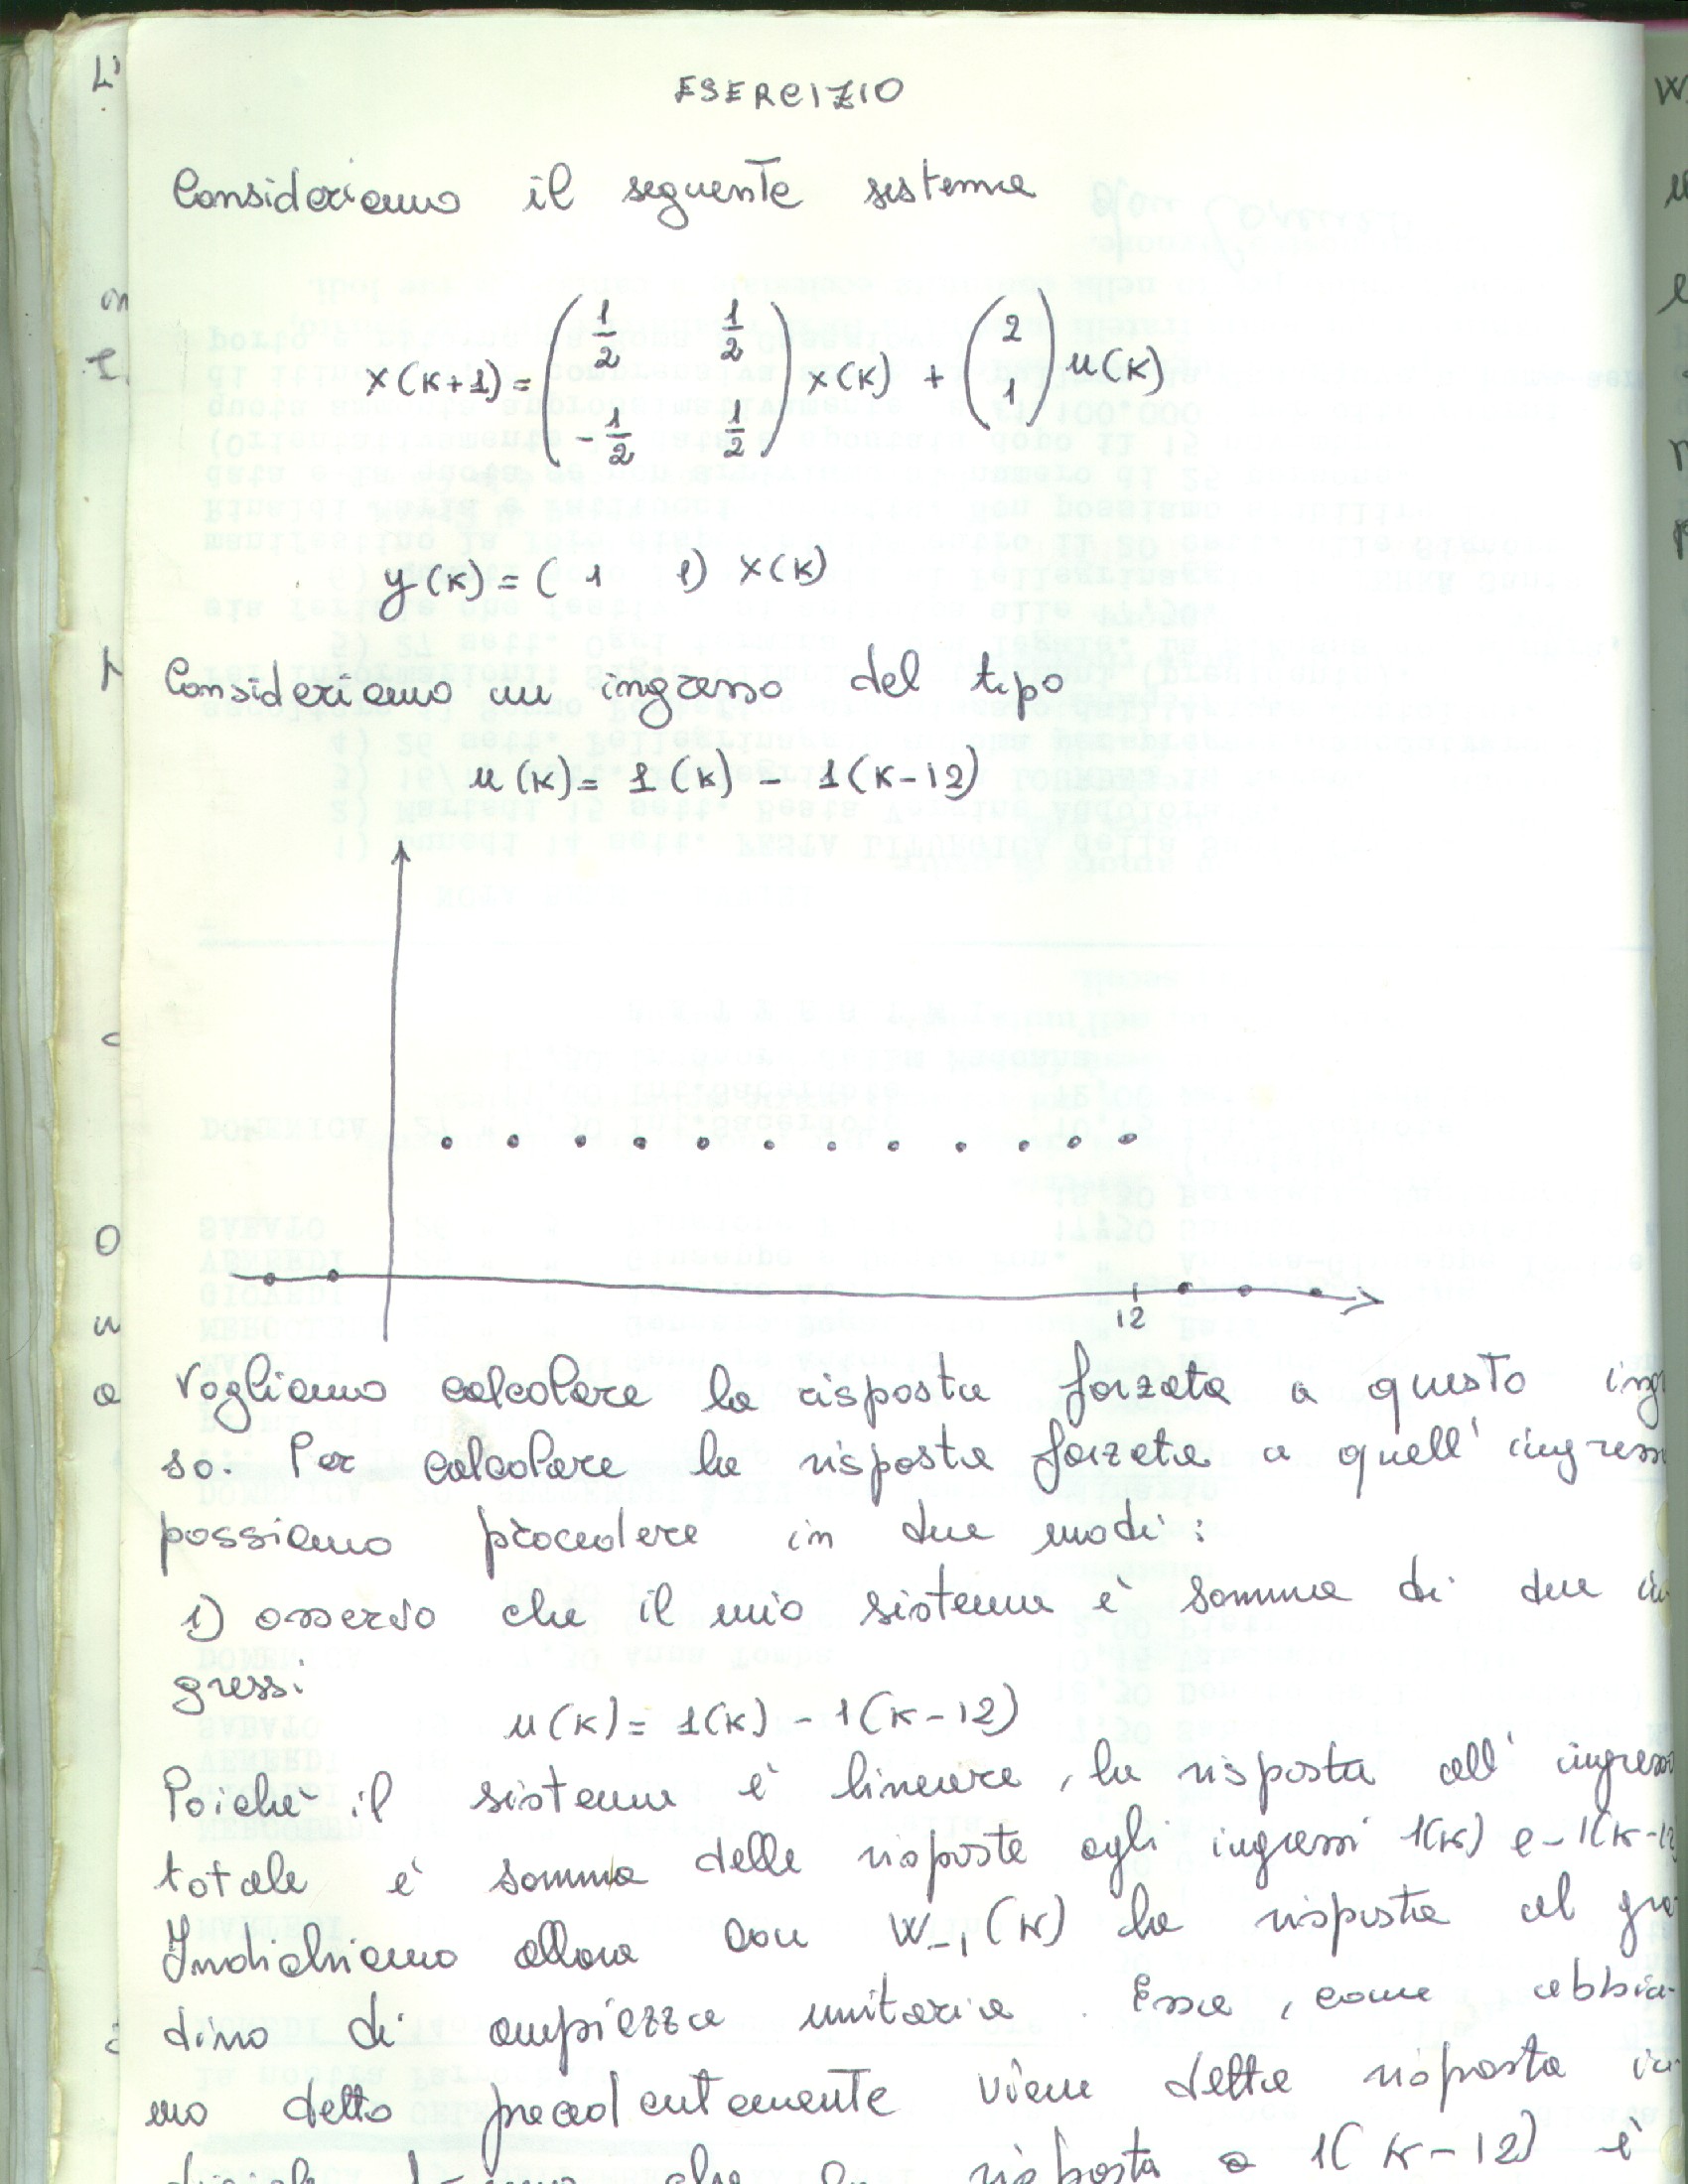 ESERCIZIO
Consideriamo il seguente sistema
x(k+1) = ( 1/2 1/2 ; -1/2 1/2 ) x(k) + ( 2 ; 1 ) u(k)
y(k) = ( 1 1) x(k)
Consideriamo un ingresso del tipo
u(k) = 1(k) - 1(k-12)
12
Vogliamo calcolare la risposta forzata a questo ing
so. Per calcolare la risposta forzata a quell' ingress
possiamo procedere in due modi:
1) osservo che il mio sistema è somma di due in
gressi
u(k) = 1(k) - 1(k-12)
Poichè il sistema è lineare, la risposta all' ingress
totale è somma delle risposte agli ingressi 1(k) e -1(k-12
Indichiamo allora con W-1(k) la risposta al gra
dino di ampiezza unitaria. Essa, come abbia-
mo detto precedentemente viene detta risposta in
che la risposta a 1(k-12) è